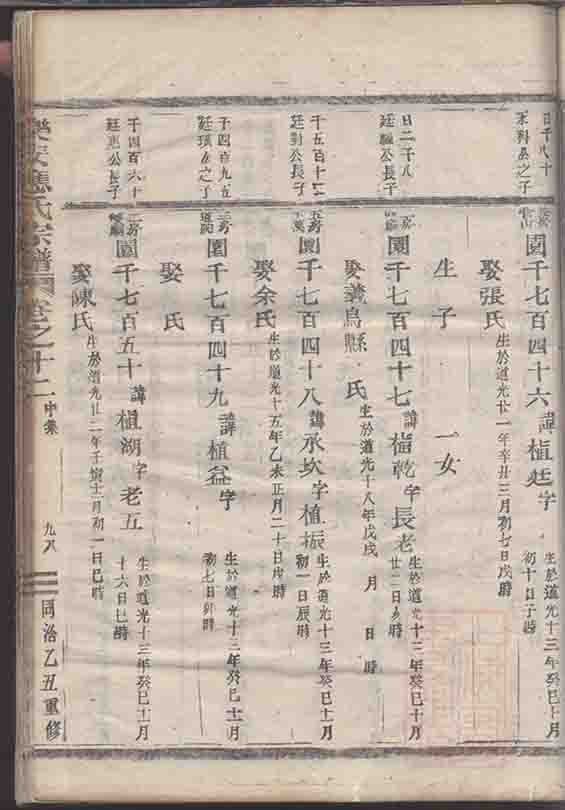 日千八十
園千七百四十六諱植廷字
生於道光十三年癸巳十月
初十日子時
娶張氏
生於道光廿一年辛丑三月初七日戌時
生子 一女
日二千八
廷公長子
園千七百四十七諱植乾字長老
生於道光十三年癸巳十月
廿二日亥時
娶義烏縣 氏
生於道光十八年戊戌 月 日 時
千五百十二
廷對公長子
園千七百四十八諱承坎字植振
生於道光十三年癸巳十月
初一日辰時
娶余氏
生於道光十五年乙未正月二十日戌時
千四百九五
廷公之子
園千七百四十九諱植益字
生於道光十三年癸巳十一月
初七日卯時
娶 氏
千四百六十
廷惠公長子
園千七百五十諱植湖字老五
生於道光十三年癸巳十月
十六日巳時
娶陳氏
生於道光廿二年壬寅十二月初一日巳時
應氏宗譜 卷之十二 中集 九八 同治乙丑重修